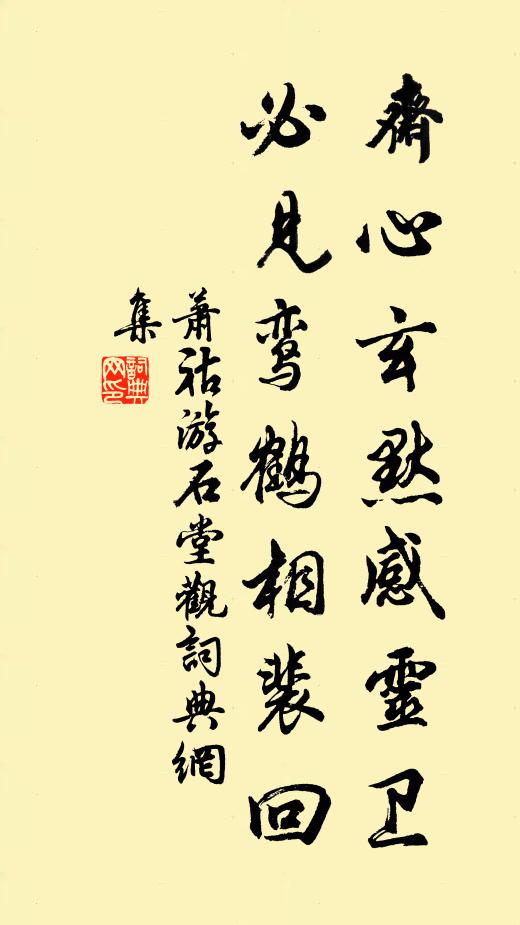 齋心玄默感靈卫
必見鸾鶴相裴回
萧祜游石堂觀詞典網
集
詞典
网印